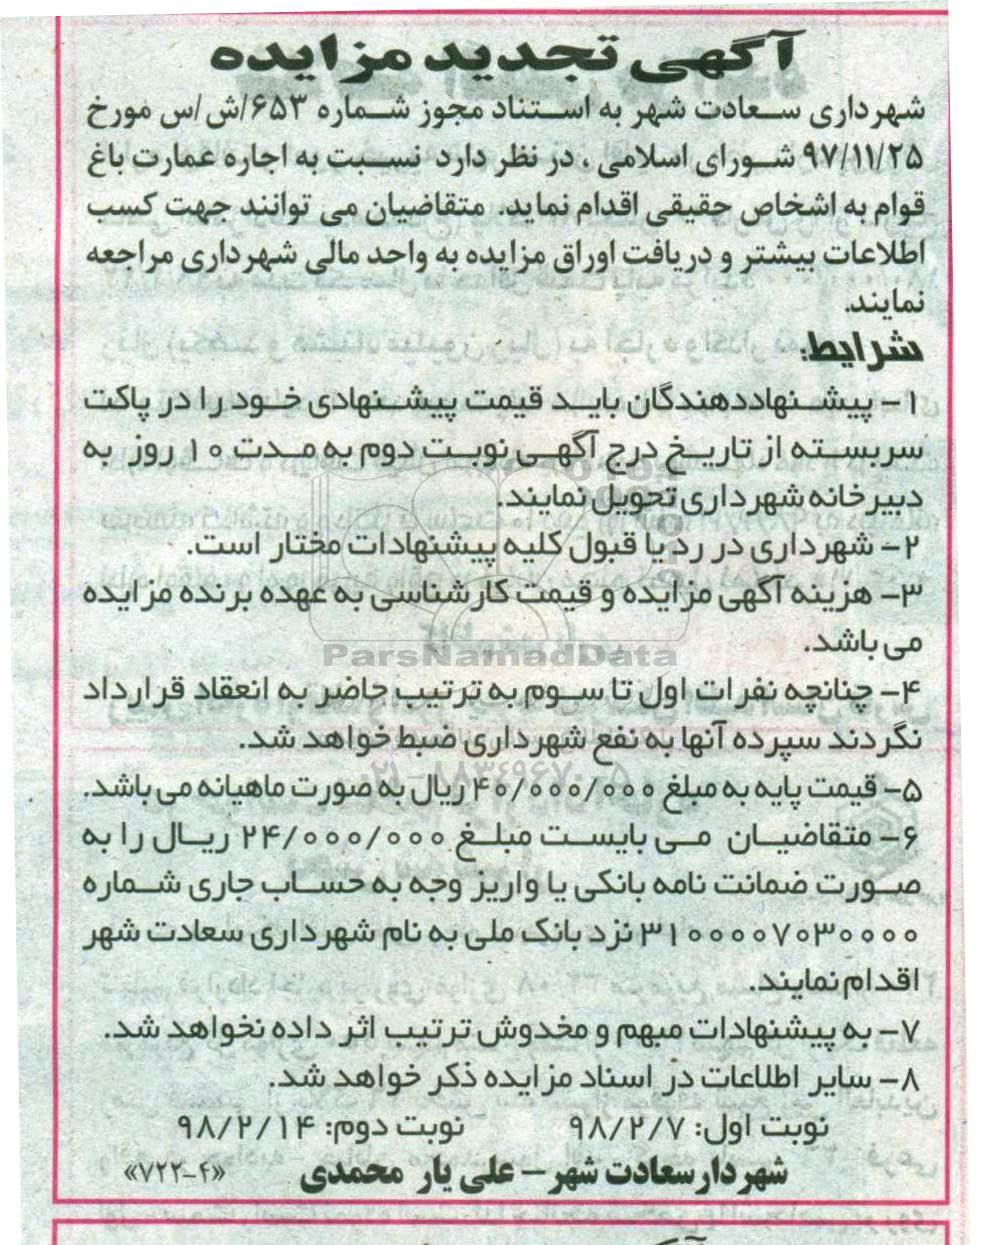 آگهی تجدید مزایده
شهرداری سعادت شهر به استناد مجوز شماره ۶۵۳/ش/س مورخ
۹۷/۱۱/۲۵ شورای اسلامی ، در نظر دارد نسبت به اجاره عمارت باغ
قوام به اشخاص حقیقی اقدام نماید. متقاضیان می توانند جهت کسب
اطلاعات بیشتر و دریافت اوراق مزایده به واحد مالی شهرداری مراجعه
نمایند.
شرایط:
۱- پیشنهاددهندگان باید قیمت پیشنهادی خود را در پاکت
سربسته از تاریخ درج آگهی نوبت دوم به مدت ۱۰ روز به
دبیرخانه شهرداری تحویل نمایند.
۲- شهرداری در رد یا قبول کلیه پیشنهادات مختار است.
۳- هزینه آگهی مزایده و قیمت کارشناسی به عهده برنده مزایده
می باشد.
ParsNamadData
۴- چنانچه نفرات اول تا سوم به ترتیب حاضر به انعقاد قرارداد
نگردند سپرده آنها به نفع شهرداری ضبط خواهد شد.
۵- قیمت پایه به مبلغ ۴۰/۰۰۰/۰۰۰ ریال به صورت ماهیانه می باشد.
۶- متقاضیان می بایست مبلغ ۲۴/۰۰۰/۰۰۰ ریال را به
صورت ضمانت نامه بانکی یا واریز وجه به حساب جاری شماره
۳۱۰۰۰۰۷۰۳۰۰۰۰ نزد بانک ملی به نام شهرداری سعادت شهر
اقدام نمایند.
۷- به پیشنهادات مبهم و مخدوش ترتیب اثر داده نخواهد شد.
۸- سایر اطلاعات در اسناد مزایده ذکر خواهد شد.
نوبت اول: ۹۸/۲/۷ نوبت دوم: ۹۸/۲/۱۴
شهردار سعادت شهر - علی یار محمدی «۷۲۲-۴»